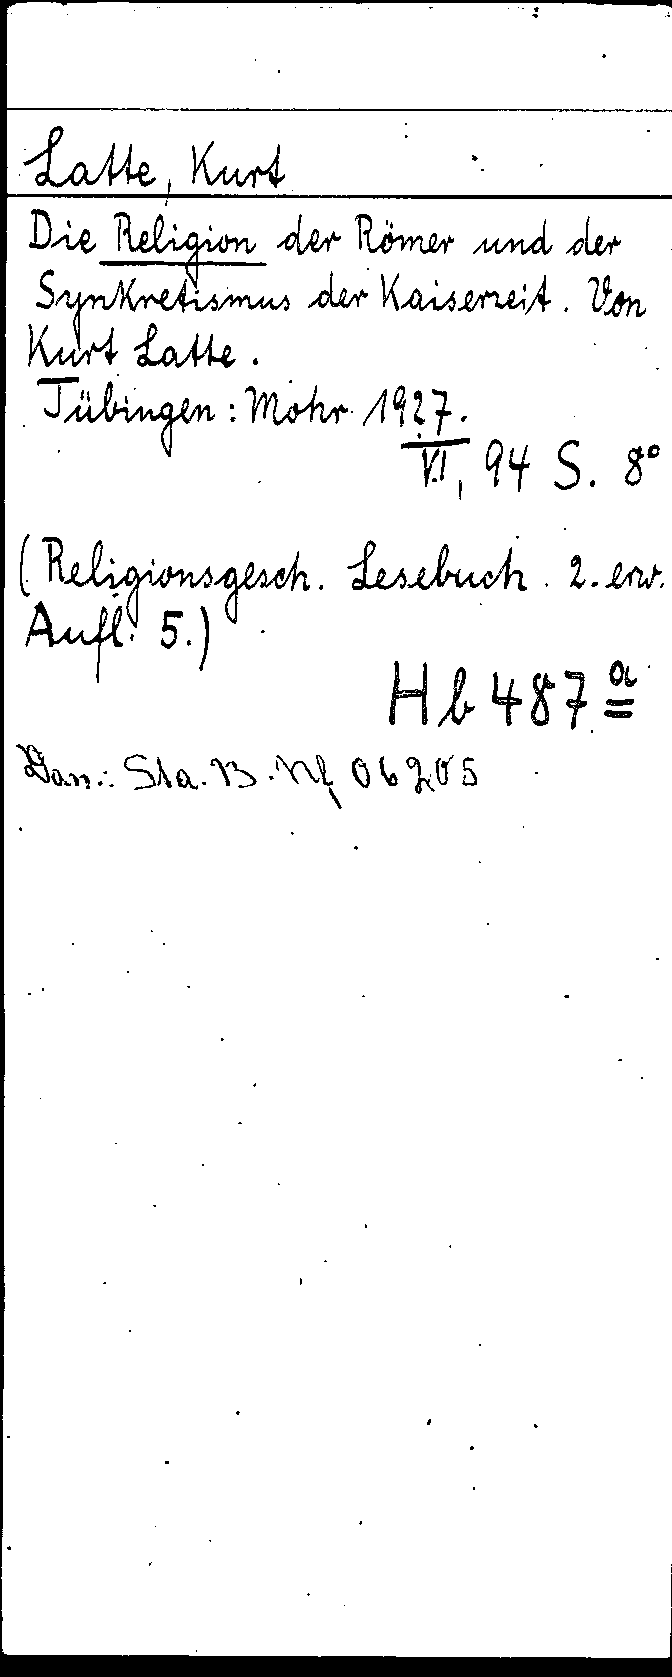 Latte, Kurt
Die Religion der Römer und der
Synkretismus der Kaiserzeit. Von
Kurt Latte.
Tübingen: Mohr 1927.
VI, 94 S. 8°
(Religionsgesch. Lesebuch. 2. erw.
Aufl. 5.)
Hb 487 a
Sta. B. 06205